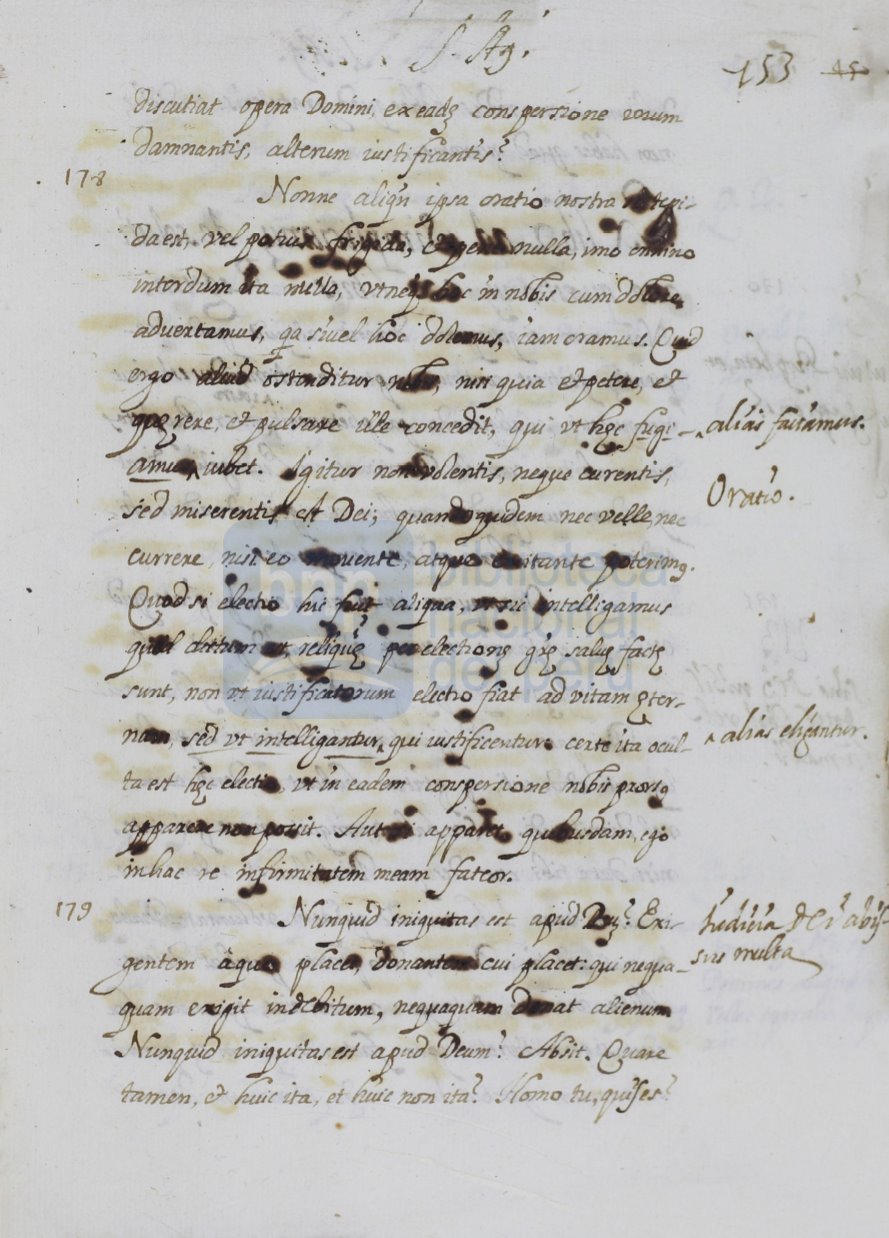 S. Ag.
153 45
discutiat opera Domini, ex eadẽ conspersione unum
damnantis, alterum iustificantis?
178
Nonne aliqñ ipsa oratio nostra tepi-
da est, vel potius frigida, et nulla, imo omnino
interdum ita nulla, vt neq; hoc in nobis cum dolore
advertamus, qa si vel hoc dolemus, iam oramus. Quid
ergo aliud ostenditur nobis, nisi quia et petere, et
quęrere, et pulsare ille concedit, qui vt hęc fugi-
amus ‸ iubet. Igitur non volentis, neque currentis,
sed miserentis est Dei; quando quidem nec velle, nec
currere, nisi eo movente, atque excitante poterimꝰ.
Quod si electio hic fuit aliqua, vt sic intelligamus
quod dictum est, reliquię per electionẽ grę salvę factę
sunt, non vt iustificatorum electio fiat ad vitam ęter-
nam, sed vt intelligantur ‸ qui iustificentur: certe ita ocul-
ta est hęc electio, vt in eadem conspersione nobis prorsꝰ
apparere non possit. Aut si apparet quibusdam, ego
in hac re infirmitatem meam fateor.
‸ aliàs faciamus.
Oratio.
‸ aliàs eligantur.
179
Nunquid iniquitas est apud Dẽũ? Exi-
gentem à quo placet, donantem cui placet: qui nequa-
quam exigit indebitum, nequaquam donat alienum
Nunquid iniquitas est apud Deum? Absit. Quare
tamen, et huic ita, et huic non ita? Homo tu, quis es?
Iudicia Dei abis-
sus multa